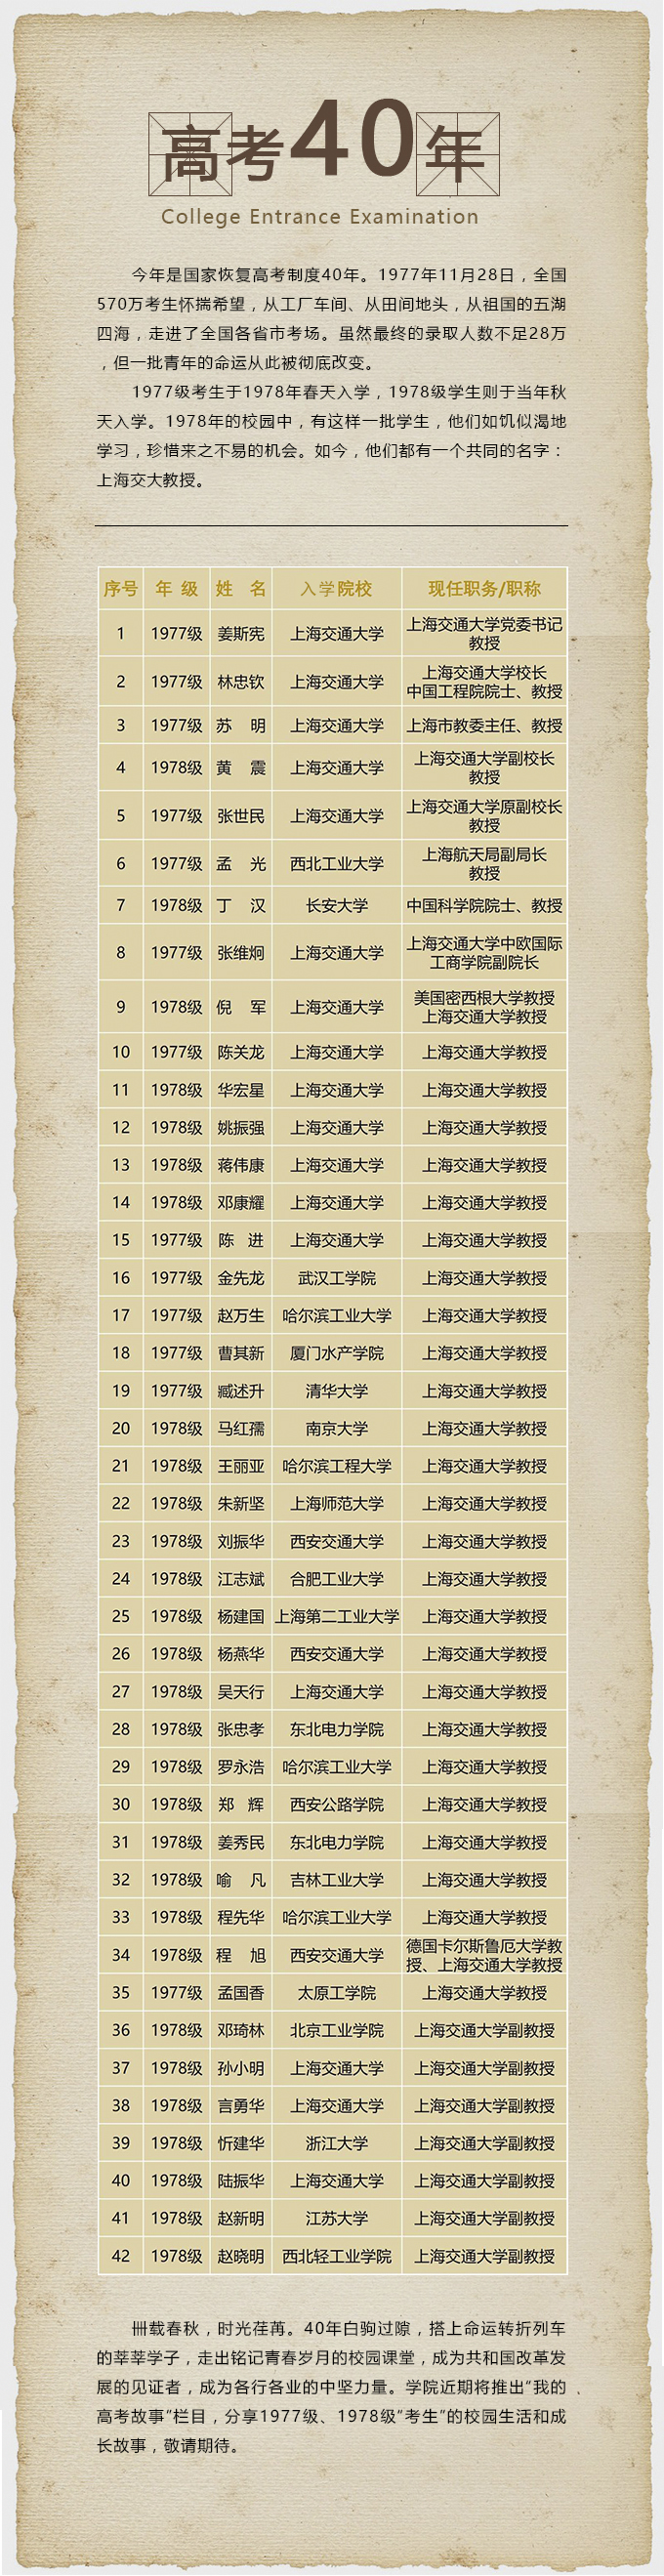 高考40年
College Entrance Examination
今年是国家恢复高考制度40年。1977年11月28日，全国
570万考生怀揣希望，从工厂车间、从田间地头，从祖国的五湖
四海，走进了全国各省市考场。虽然最终的录取人数不足28万
，但一批青年的命运从此被彻底改变。
1977级考生于1978年春天入学，1978级学生则于当年秋
天入学。1978年的校园中，有这样一批学生，他们如饥似渴地
学习，珍惜来之不易的机会。如今，他们都有一个共同的名字：
上海交大教授。
序号 年 级 姓 名 入学院校 现任职务/职称
1 1977级 姜斯宪 上海交通大学 上海交通大学党委书记
教授
2 1977级 林忠钦 上海交通大学 上海交通大学校长
中国工程院院士、教授
3 1977级 苏 明 上海交通大学 上海市教委主任、教授
4 1978级 黄 震 上海交通大学 上海交通大学副校长
教授
5 1977级 张世民 上海交通大学 上海交通大学原副校长
教授
6 1977级 孟 光 西北工业大学 上海航天局副局长
教授
7 1978级 丁 汉 长安大学 中国科学院院士、教授
8 1977级 张维炯 上海交通大学 上海交通大学中欧国际
工商学院副院长
9 1978级 倪 军 上海交通大学 美国密西根大学教授
上海交通大学教授
10 1977级 陈关龙 上海交通大学 上海交通大学教授
11 1978级 华宏星 上海交通大学 上海交通大学教授
12 1978级 姚振强 上海交通大学 上海交通大学教授
13 1978级 蒋伟康 上海交通大学 上海交通大学教授
14 1978级 邓康耀 上海交通大学 上海交通大学教授
15 1977级 陈 进 上海交通大学 上海交通大学教授
16 1977级 金先龙 武汉工学院 上海交通大学教授
17 1977级 赵万生 哈尔滨工业大学 上海交通大学教授
18 1977级 曹其新 厦门水产学院 上海交通大学教授
19 1977级 臧述升 清华大学 上海交通大学教授
20 1978级 马红孺 南京大学 上海交通大学教授
21 1978级 王丽亚 哈尔滨工程大学 上海交通大学教授
22 1978级 朱新坚 上海师范大学 上海交通大学教授
23 1978级 刘振华 西安交通大学 上海交通大学教授
24 1978级 江志斌 合肥工业大学 上海交通大学教授
25 1978级 杨建国 上海第二工业大学 上海交通大学教授
26 1978级 杨燕华 西安交通大学 上海交通大学教授
27 1978级 吴天行 上海交通大学 上海交通大学教授
28 1978级 张忠孝 东北电力学院 上海交通大学教授
29 1978级 罗永浩 哈尔滨工业大学 上海交通大学教授
30 1978级 郑 辉 西安公路学院 上海交通大学教授
31 1978级 姜秀民 东北电力学院 上海交通大学教授
32 1978级 喻 凡 吉林工业大学 上海交通大学教授
33 1978级 程先华 哈尔滨工业大学 上海交通大学教授
34 1978级 程 旭 西安交通大学 德国卡尔斯鲁厄大学教
授、上海交通大学教授
35 1977级 孟国香 太原工学院 上海交通大学教授
36 1978级 邓琦林 北京工业学院 上海交通大学副教授
37 1978级 孙小明 上海交通大学 上海交通大学副教授
38 1978级 言勇华 上海交通大学 上海交通大学副教授
39 1978级 忻建华 浙江大学 上海交通大学副教授
40 1978级 陆振华 上海交通大学 上海交通大学副教授
41 1978级 赵新明 江苏大学 上海交通大学副教授
42 1978级 赵晓明 西北轻工业学院 上海交通大学副教授
卌载春秋，时光荏苒。40年白驹过隙，搭上命运转折列车
的莘莘学子，走出铭记青春岁月的校园课堂，成为共和国改革发
展的见证者，成为各行各业的中坚力量。学院近期将推出“我的
高考故事”栏目，分享1977级、1978级“考生”的校园生活和成
长故事，敬请期待。